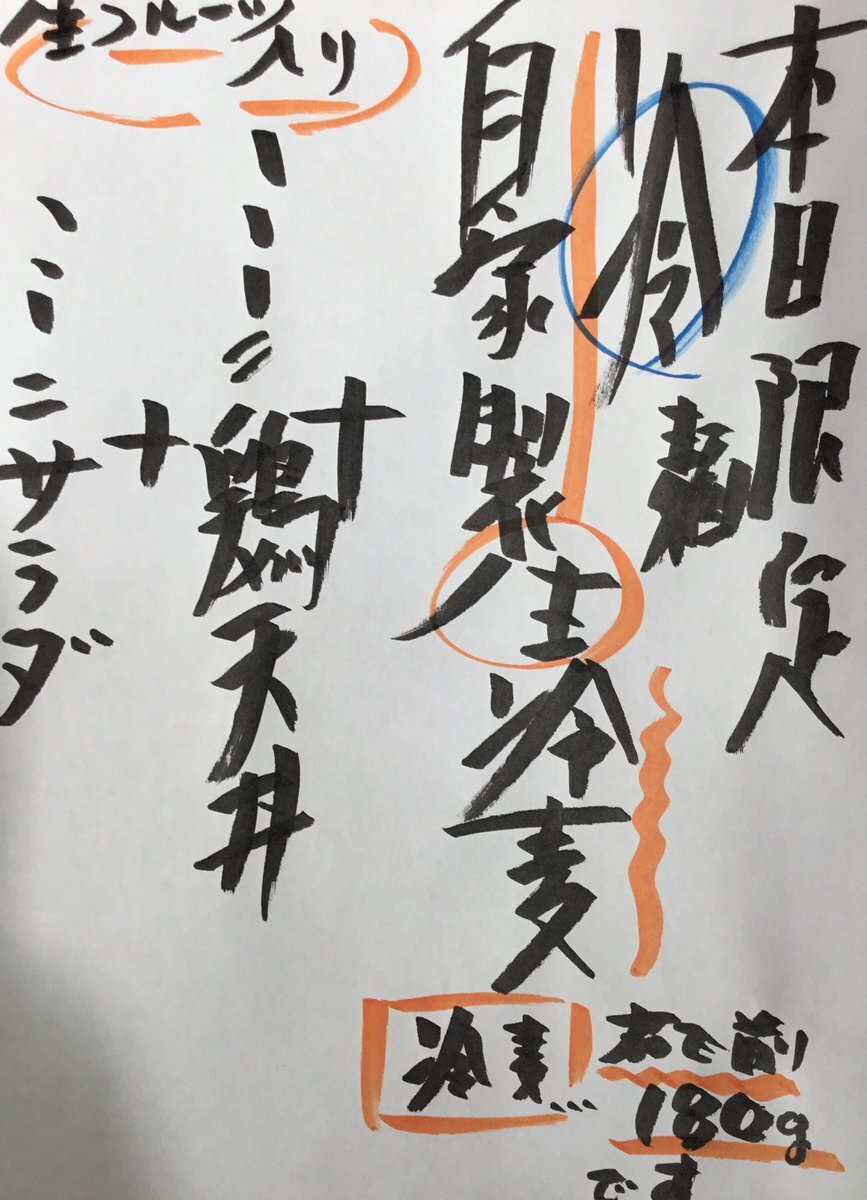 本日限定
冷
自家製生冷麦
冷麦...
茹で前
180g
です
+
ミニ鶏天丼
+
生フルーツ入り
ミニサラダ